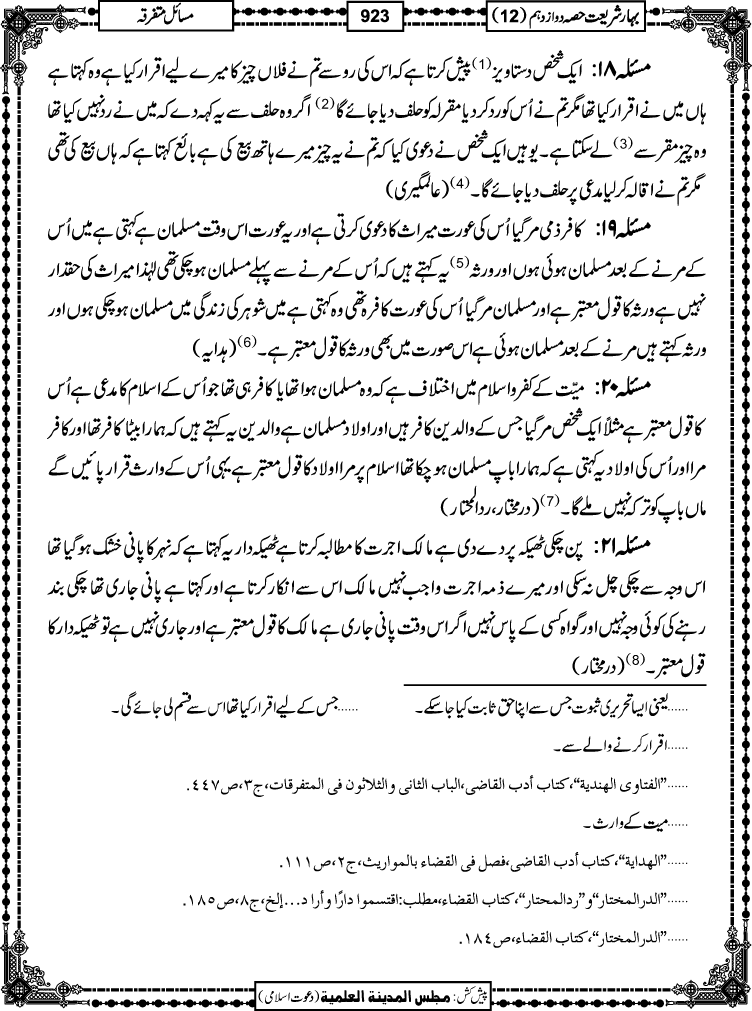 بہارِ شریعت حصہ دوازدہم (12)
923
مسائل متفرقہ
مسئلہ ۱۸: ایک شخص دستاویز (1) پیش کرتا ہے کہ اس کی رو سے تم نے فلاں چیز کا میرے لیے اقرار کیا ہے وہ کہتا ہے
ہاں میں نے اقرار کیا تھا مگر تم نے اُس کو رد کر دیا مقرلہ کو حلف دیا جائے گا (2) اگر وہ حلف سے یہ کہہ دے کہ میں نے رد نہیں کیا تھا
وہ چیز مقر سے (3) لے سکتا ہے۔ یوہیں ایک شخص نے دعویٰ کیا کہ تم نے یہ چیز میرے ہاتھ بیع کی ہے بائع کہتا ہے کہ ہاں بیع کی تھی
مگر تم نے اقالہ کرلیا مدعی پر حلف دیا جائے گا۔ (4) (عالمگیری)
مسئلہ ۱۹: کافر ذمی مرگیا اُس کی عورت میراث کا دعویٰ کرتی ہے اور یہ عورت اس وقت مسلمان ہے کہتی ہے میں اُس
کے مرنے کے بعد مسلمان ہوئی ہوں اور ورثہ (5) یہ کہتے ہیں کہ اُس کے مرنے سے پہلے مسلمان ہوچکی تھی لہٰذا میراث کی حقدار
نہیں ہے ورثہ کا قول معتبر ہے اور مسلمان مرگیا اُس کی عورت کافرہ تھی وہ کہتی ہے میں شوہر کی زندگی میں مسلمان ہوچکی ہوں اور
ورثہ کہتے ہیں مرنے کے بعد مسلمان ہوئی ہے اس صورت میں بھی ورثہ کا قول معتبر ہے۔ (6) (ہدایہ)
مسئلہ ۲۰: میّت کے کفر و اسلام میں اختلاف ہے کہ وہ مسلمان ہوا تھا یا کافر ہی تھا جو اُس کے اسلام کا مدعی ہے اُس
کا قول معتبر ہے مثلاً ایک شخص مرگیا جس کے والدین کافر ہیں اور اولاد مسلمان ہے والدین یہ کہتے ہیں کہ ہمارا بیٹا کافر تھا اور کافر
مرا اور اُس کی اولاد یہ کہتی ہے کہ ہمارا باپ مسلمان ہوچکا تھا اسلام پر مرا اولاد کا قول معتبر ہے یہی اُس کے وارث قرار پائیں گے
ماں باپ کو ترکہ نہیں ملے گا۔ (7) (درمختار، ردالمحتار)
مسئلہ ۲۱: پن چکی ٹھیکہ پر دے دی ہے مالک اجرت کا مطالبہ کرتا ہے ٹھیکہ دار یہ کہتا ہے کہ نہر کا پانی خشک ہوگیا تھا
اس وجہ سے چکی چل نہ سکی اور میرے ذمہ اجرت واجب نہیں مالک اس سے انکار کرتا ہے اور کہتا ہے پانی جاری تھا چکی بند
رہنے کی کوئی وجہ نہیں اور گواہ کسی کے پاس نہیں اگر اس وقت پانی جاری ہے مالک کا قول معتبر ہے اور جاری نہیں ہے تو ٹھیکہ دار کا
قول معتبر۔ (8) (درمختار)
......یعنی ایسا تحریری ثبوت جس سے اپنا حق ثابت کیا جاسکے۔ ......جس کے لیے اقرار کیا تھا اس سے قسم لی جائے گی۔
......اقرار کرنے والے سے۔
......"الفتاوی الھندیة"،کتاب أدب القاضی،الباب الثانی والثلاثون فی المتفرقات،ج۳،ص۴۴۷.
......میت کے وارث۔
......"الھدایة"،کتاب أدب القاضی،فصل فی القضاء بالمواریث،ج۲،ص۱۱۱.
......"الدرالمختار"و"ردالمحتار"،کتاب القضاء،مطلب:اقتسموا دارًا وأراد...إلخ،ج۸،ص۱۸۵.
......"الدرالمختار"،کتاب القضاء،ص۱۸۴.
پیش کش: مجلس المدینة العلمیة (دعوت اسلامی)